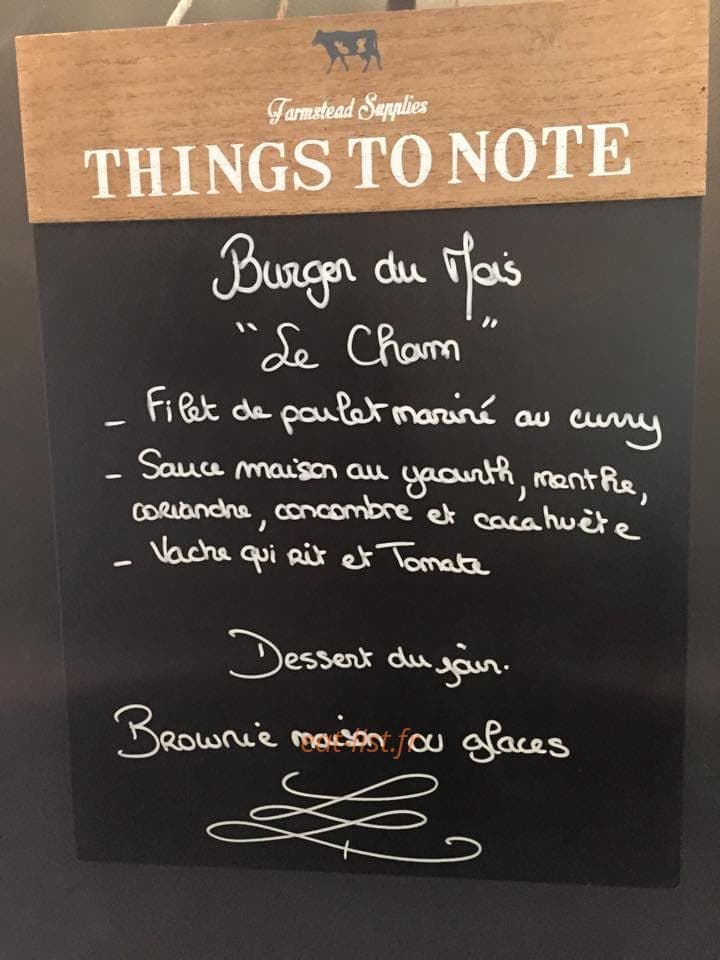 Farmstead Supplies
THINGS TO NOTE
Burger du Mois
"Le Cham"
- Filet de poulet mariné au curry
- Sauce maison au yaourth, menthe,
coriandre, concombre et cacahuète
- Vache qui rit et Tomate
Dessert du jour.
Brownie maison ou glaces
eat-list.fr